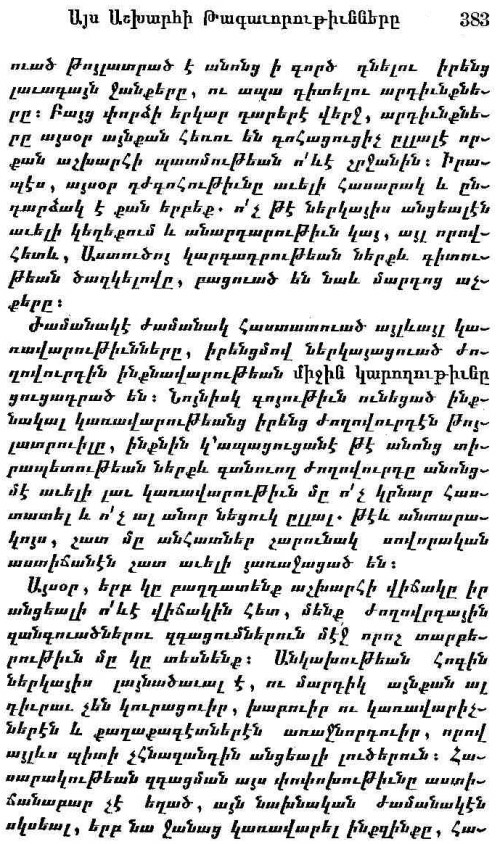 Այս Աշխարհի Թագաւորութիւնները 383
ուած թոյլատրած է անոնց ի գործ դնելու իրենց
լաւագոյն ջանքերը, ու ապա դիտելու արդիւնքնե-
րը։ Բայց փորձի երկար դարերէ վերջ, արդիւնքնե-
րը այսօր այնքան հեռու են գոհացուցիչ ըլլալէ որ-
քան աշխարհի պատմութեան ո՛ևէ շրջանին։ Իրա-
պէս, այսօր դժգոհութիւնը աւելի հասարակ և ըն-
դարձակ է քան երբեք. ո՛չ թէ ներկայիս անցեալէն
աւելի կեղեքում և անարդարութիւն կայ, այլ որով-
հետև, Աստուծոյ կարգադրութեան ներքև գիտու-
թեան ծաղկելովը, բացուած են նաև մարդոց աչ-
քերը։
Ժամանակէ ժամանակ հաստատուած այլևայլ կա-
ռավարութիւնները, իրենցմով ներկայացուած ժո-
ղովուրդին ինքնավարութեան միջին կարողութիւնը
ցուցադրած են։ Նոյնիսկ գոյութիւն ունեցած ինք-
նակալ կառավարութեանց իրենց ժողովուրդէն թոյ-
լատրուիլը, ինքնին կ՚ապացուցանէ թէ անոնց տի-
րապետութեան ներքև գտնուող ժողովուրդը անոնց-
մէ աւելի լաւ կառավարութիւն մը ո՛չ կրնար հաս-
տատել և ո՛չ ալ անոր նեցուկ ըլլալ. թէև անտարա-
կոյս, շատ մը անհատներ շարունակ սովորական
աստիճանէն շատ աւելի յառաջացած են։
Այսօր, երբ կը բաղդատենք աշխարհի վիճակը իր
անցեալի ո՛ևէ վիճակին հետ, մենք ժողովրդային
զանգուածներու զգացումներուն մէջ որոշ տարբե-
րութիւն մը կը տեսնենք։ Անկախութեան հոգին
ներկայիս լայնածաւալ է, ու մարդիկ այնքան ալ
դիւրաւ չեն կուրացուիր, խաբուիր ու կառավարիչ-
ներէն և քաղաքագէտներէն առաջնորդուիր, որով
այլևս պիտի չհնազանդին անցեալի լուծերուն։ Հա-
սարակութեան զգացման այս փոփոխութիւնը աստի-
ճանաբար չէ եղած, այն նախնական ժամանակէն
սկսեալ, երբ նա ջանաց կառավարել ինքզինքը, հա-